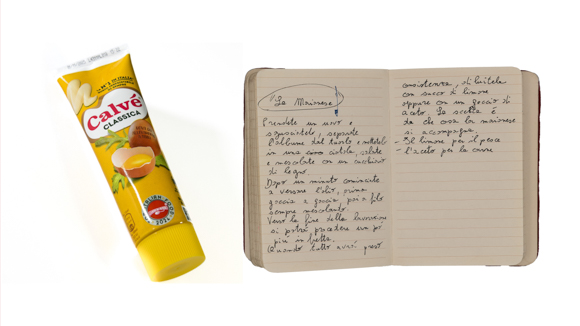 N°1 IN ITALIA*
Calvé
CLASSICA
ITALIAN FOOD
"La Maionese"
Prendete un uovo e
sgusciatelo, separate
l'albume dal tuorlo e mettetelo
in una ciotola, salate
e mescolate con un cucchiaio
di legno.
Dopo un minuto cominciate
a versare l'olio, prima
goccia a goccia poi a filo
sempre mescolando.
Verso la fine della lavorazione
si potrà procedere un po'
più in fretta.
Quando tutto avrà preso
consistenza, diluitela
con succo di limone
oppure con un goccio di
aceto. La scelta è
da che cosa la maionese
si accompagna.
- Il limone per il pesce
- L'aceto per la carne